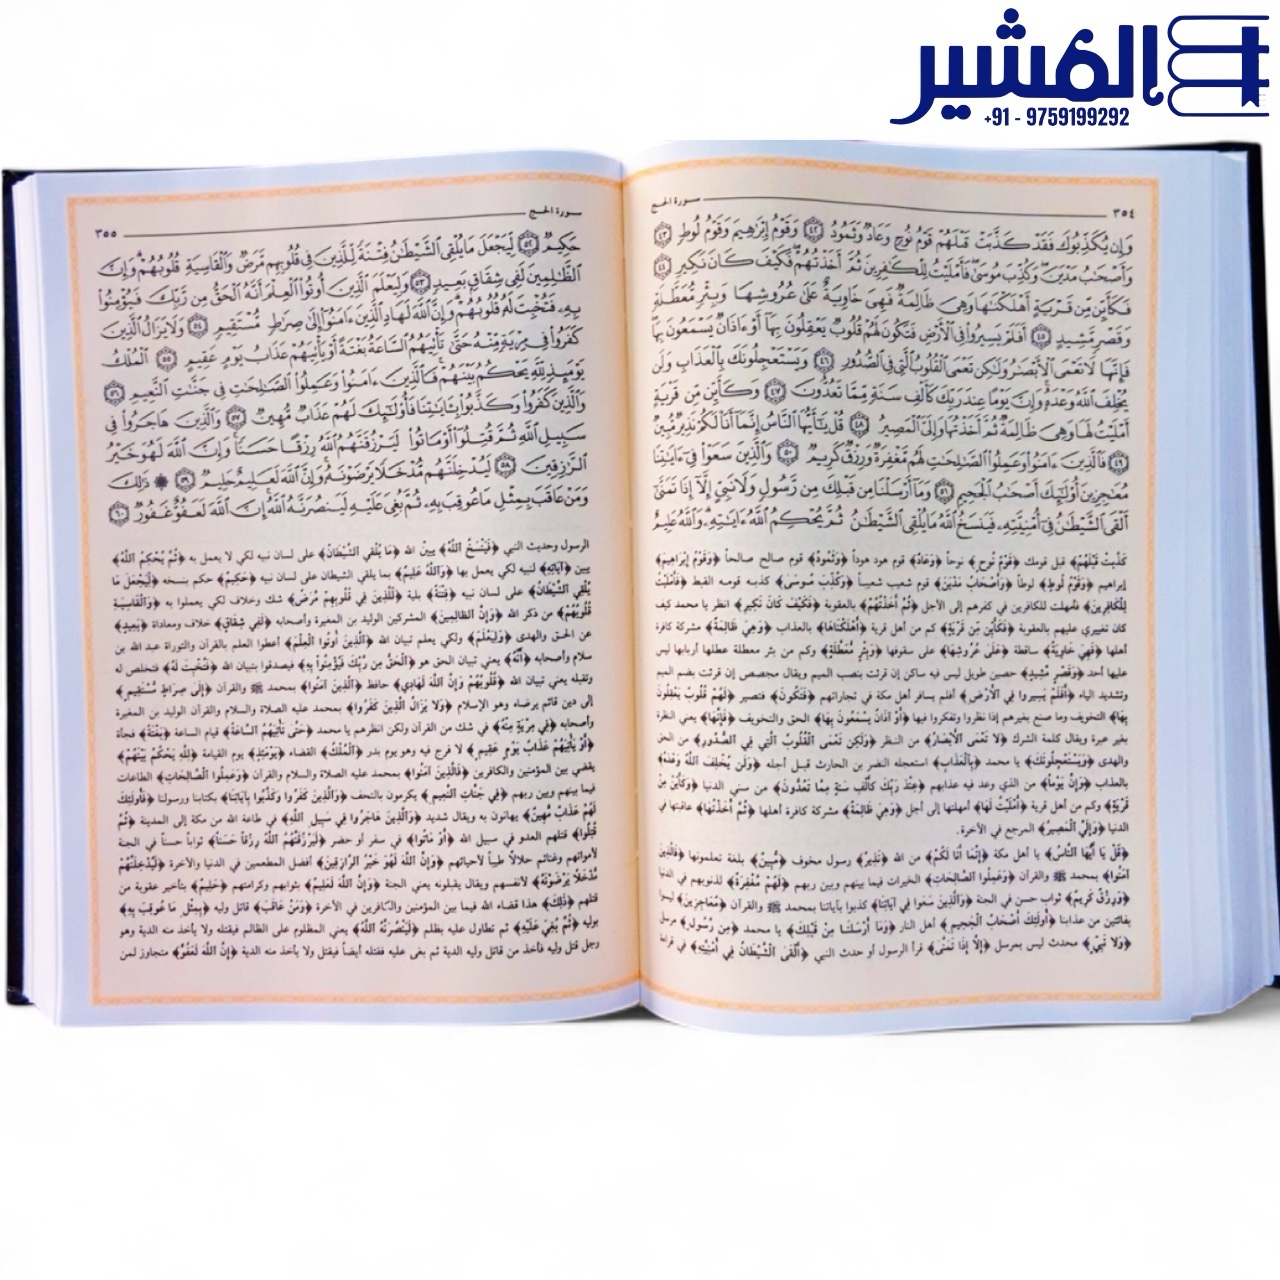 المشير
+91 - 9759199292
٣٥٤
سورة الحج
وَإِن يُكَذِّبُوكَ فَقَدْ كَذَّبَتْ قَبْلَهُمْ قَوْمُ نُوحٍ وَعَادٌ وَثَمُودُ ٤٢ وَقَوْمُ إِبْرَاهِيمَ وَقَوْمُ لُوطٍ ٤٣
وَأَصْحَابُ مَدْيَنَ وَكُذِّبَ مُوسَىٰ فَأَمْلَيْتُ لِلْكَافِرِينَ ثُمَّ أَخَذْتُهُمْ فَكَيْفَ كَانَ نَكِيرِ ٤٤
فَكَأَيِّن مِّن قَرْيَةٍ أَهْلَكْنَاهَا وَهِيَ ظَالِمَةٌ فَهِيَ خَاوِيَةٌ عَلَىٰ عُرُوشِهَا وَبِئْرٍ مُّعَطَّلَةٍ
وَقَصْرٍ مَّشِيدٍ ٤٥ أَفَلَمْ يَسِيرُوا فِي الْأَرْضِ فَتَكُونَ لَهُمْ قُلُوبٌ يَعْقِلُونَ بِهَا أَوْ ءَاذَانٌ يَسْمَعُونَ بِهَا
فَإِنَّهَا لَا تَعْمَى الْأَبْصَارُ وَلَٰكِن تَعْمَى الْقُلُوبُ الَّتِي فِي الصُّدُورِ ٤٦ وَيَسْتَعْجِلُونَكَ بِالْعَذَابِ وَلَن
يُخْلِفَ اللَّهُ وَعْدَهُ وَإِنَّ يَوْمًا عِندَ رَبِّكَ كَأَلْفِ سَنَةٍ مِّمَّا تَعُدُّونَ ٤٧ وَكَأَيِّن مِّن قَرْيَةٍ
أَمْلَيْتُ لَهَا وَهِيَ ظَالِمَةٌ ثُمَّ أَخَذْتُهَا وَإِلَيَّ الْمَصِيرُ ٤٨ قُلْ يَا أَيُّهَا النَّاسُ إِنَّمَا أَنَا لَكُمْ نَذِيرٌ مُّبِينٌ
٤٩ فَالَّذِينَ ءَامَنُوا وَعَمِلُوا الصَّالِحَاتِ لَهُم مَّغْفِرَةٌ وَرِزْقٌ كَرِيمٌ ٥٠ وَالَّذِينَ سَعَوْا فِي ءَايَاتِنَا
مُعَاجِزِينَ أُولَٰئِكَ أَصْحَابُ الْجَحِيمِ ٥١ وَمَا أَرْسَلْنَا مِن قَبْلِكَ مِن رَّسُولٍ وَلَا نَبِيٍّ إِلَّا إِذَا تَمَنَّىٰ
أَلْقَى الشَّيْطَانُ فِي أُمْنِيَّتِهِ فَيَنسَخُ اللَّهُ مَا يُلْقِي الشَّيْطَانُ ثُمَّ يُحْكِمُ اللَّهُ ءَايَاتِهِ وَاللَّهُ عَلِيمٌ
كَذَّبَتْ قَبْلَهُمْ﴾ قبل قومك ﴿قَوْمُ نُوحٍ﴾ نوحاً ﴿وَعَادٌ﴾ قوم هود هوداً ﴿وَثَمُودُ﴾ قوم صالح صالحاً ﴿وَقَوْمُ إِبْرَاهِيمَ﴾
إبراهيم ﴿وَقَوْمُ لُوطٍ﴾ لوطاً ﴿وَأَصْحَابُ مَدْيَنَ﴾ قوم شعيب شعيباً ﴿وَكُذِّبَ مُوسَى﴾ كذبه قومه القبط ﴿فَأَمْلَيْتُ
لِلْكَافِرِينَ﴾ فأمهلت للكافرين في كفرهم إلى الأجل ﴿ثُمَّ أَخَذْتُهُمْ﴾ بالعقوبة ﴿فَكَيْفَ كَانَ نَكِيرِ﴾ انظر يا محمد كيف
كان تغييري عليهم بالعقوبة ﴿فَكَأَيِّن مِّن قَرْيَةٍ﴾ كم من أهل قرية ﴿أَهْلَكْنَاهَا﴾ بالعذاب ﴿وَهِيَ ظَالِمَةٌ﴾ مشركة كافرة
أهلها ﴿فَهِيَ خَاوِيَةٌ﴾ ساقطة ﴿عَلَى عُرُوشِهَا﴾ على سقوفها ﴿وَبِئْرٍ مُّعَطَّلَةٍ﴾ وكم من بئر معطلة عطلها أربابها ليس
عليها أحد ﴿وَقَصْرٍ مَّشِيدٍ﴾ حصين طويل ليس فيه ساكن إن قرئت بنصب الميم ويقال مجصص إن قرئت بضم الميم
وتشديد الياء ﴿أَفَلَمْ يَسِيرُوا فِي الْأَرْضِ﴾ أفلم يسافر أهل مكة في تجاراتهم ﴿فَتَكُونَ﴾ فتصير ﴿لَهُمْ قُلُوبٌ يَعْقِلُونَ
بِهَا﴾ التخويف وما صنع بغيرهم إذا نظروا وتفكروا فيها ﴿أَوْ آذَانٌ يَسْمَعُونَ بِهَا﴾ الحق والتخويف ﴿فَإِنَّهَا﴾ يعني النظرة
بغير عبرة ويقال كلمة الشرك ﴿لَا تَعْمَى الْأَبْصَارُ﴾ من النظر ﴿وَلَكِن تَعْمَى الْقُلُوبُ الَّتِي فِي الصُّدُورِ﴾ من الحق
والهدى ﴿وَيَسْتَعْجِلُونَكَ﴾ يا محمد ﴿بِالْعَذَابِ﴾ استعجله النضر بن الحارث قبل أجله ﴿وَلَن يُخْلِفَ اللَّهُ وَعْدَهُ﴾
بالعذاب ﴿وَإِنَّ يَوْماً﴾ من الذي وعد فيه عذابهم ﴿عِنْدَ رَبِّكَ كَأَلْفِ سَنَةٍ مِمَّا تَعُدُّونَ﴾ من سني الدنيا ﴿وَكَأَيِّن مِّن
قَرْيَةٍ﴾ وكم من أهل قرية ﴿أَمْلَيْتُ لَهَا﴾ أمهلتها إلى أجل ﴿وَهِيَ ظَالِمَةٌ﴾ مشركة كافرة أهلها ﴿ثُمَّ أَخَذْتُهَا﴾ عاقبتها في
الدنيا ﴿وَإِلَيَّ الْمَصِيرُ﴾ المرجع في الآخرة.
﴿قُلْ يَا أَيُّهَا النَّاسُ﴾ يا أهل مكة ﴿إِنَّمَا أَنَا لَكُمْ﴾ من الله ﴿نَذِيرٌ﴾ رسول مخوف ﴿مُّبِينٌ﴾ بلغة تعلمونها ﴿فَالَّذِينَ
آمَنُوا﴾ بمحمد ﷺ والقرآن ﴿وَعَمِلُوا الصَّالِحَاتِ﴾ الخيرات فيما بينهم وبين ربهم ﴿لَهُم مَّغْفِرَةٌ﴾ لذنوبهم في الدنيا
﴿وَرِزْقٌ كَرِيمٌ﴾ ثواب حسن في الجنة ﴿وَالَّذِينَ سَعَوْا فِي آيَاتِنَا﴾ كذبوا بآياتنا بمحمد ﷺ والقرآن ﴿مُعَاجِزِينَ﴾ ليسوا
بفائتين من عذابنا ﴿أُولَئِكَ أَصْحَابُ الْجَحِيمِ﴾ أهل النار ﴿وَمَا أَرْسَلْنَا مِن قَبْلِكَ﴾ يا محمد ﴿مِن رَّسُولٍ﴾ مرسل
﴿وَلَا نَبِيٍّ﴾ محدث ليس بمرسل ﴿إِلَّا إِذَا تَمَنَّى﴾ قرأ الرسول أو حدث النبي ﴿أَلْقَى الشَّيْطَانُ فِي أُمْنِيَّتِهِ﴾ في قراءة
سورة الحج
٣٥٥
حَكِيمٌ ٥٢ لِّيَجْعَلَ مَا يُلْقِي الشَّيْطَانُ فِتْنَةً لِّلَّذِينَ فِي قُلُوبِهِم مَّرَضٌ وَالْقَاسِيَةِ قُلُوبُهُمْ وَإِنَّ
الظَّالِمِينَ لَفِي شِقَاقٍ بَعِيدٍ ٥٣ وَلِيَعْلَمَ الَّذِينَ أُوتُوا الْعِلْمَ أَنَّهُ الْحَقُّ مِن رَّبِّكَ فَيُؤْمِنُوا
بِهِ فَتُخْبِتَ لَهُ قُلُوبُهُمْ وَإِنَّ اللَّهَ لَهَادِ الَّذِينَ ءَامَنُوا إِلَىٰ صِرَاطٍ مُّسْتَقِيمٍ ٥٤ وَلَا يَزَالُ الَّذِينَ
كَفَرُوا فِي مِرْيَةٍ مِّنْهُ حَتَّىٰ تَأْتِيَهُمُ السَّاعَةُ بَغْتَةً أَوْ يَأْتِيَهُمْ عَذَابُ يَوْمٍ عَقِيمٍ ٥٥ الْمُلْكُ
يَوْمَئِذٍ لِّلَّهِ يَحْكُمُ بَيْنَهُمْ فَالَّذِينَ ءَامَنُوا وَعَمِلُوا الصَّالِحَاتِ فِي جَنَّاتِ النَّعِيمِ ٥٦
وَالَّذِينَ كَفَرُوا وَكَذَّبُوا بِآيَاتِنَا فَأُولَٰئِكَ لَهُمْ عَذَابٌ مُّهِينٌ ٥٧ وَالَّذِينَ هَاجَرُوا فِي
سَبِيلِ اللَّهِ ثُمَّ قُتِلُوا أَوْ مَاتُوا لَيَرْزُقَنَّهُمُ اللَّهُ رِزْقًا حَسَنًا وَإِنَّ اللَّهَ لَهُوَ خَيْرُ
الرَّازِقِينَ ٥٨ لَيُدْخِلَنَّهُم مُّدْخَلًا يَرْضَوْنَهُ وَإِنَّ اللَّهَ لَعَلِيمٌ حَلِيمٌ ٥٩ ۞ ذَٰلِكَ
وَمَنْ عَاقَبَ بِمِثْلِ مَا عُوقِبَ بِهِ ثُمَّ بُغِيَ عَلَيْهِ لَيَنصُرَنَّهُ اللَّهُ إِنَّ اللَّهَ لَعَفُوٌّ غَفُورٌ ٦٠
الرسول وحديث النبي ﴿فَيَنْسَخُ اللَّهُ﴾ يبين الله ﴿مَا يُلْقِي الشَّيْطَانُ﴾ على لسان نبيه لكي لا يعمل به ﴿ثُمَّ يُحْكِمُ اللَّهُ﴾
يبين ﴿آيَاتِهِ﴾ لنبيه لكي يعمل بها ﴿وَاللَّهُ عَلِيمٌ﴾ بما يلقي الشيطان على لسان نبيه ﴿حَكِيمٌ﴾ حكم بنسخه ﴿لِيَجْعَلَ مَا
يُلْقِي الشَّيْطَانُ﴾ على لسان نبيه ﴿فِتْنَةً﴾ بلية ﴿لِلَّذِينَ فِي قُلُوبِهِمْ مَّرَضٌ﴾ شك وخلاف لكي يعملوا به ﴿وَالْقَاسِيَةِ
قُلُوبُهُمْ﴾ من ذكر الله ﴿وَإِنَّ الظَّالِمِينَ﴾ المشركين الوليد بن المغيرة وأصحابه ﴿لَفِي شِقَاقٍ﴾ خلاف ومعاداة ﴿بَعِيدٍ﴾
عن الحق والهدى ﴿وَلِيَعْلَمَ﴾ ولكي يعلم تبيان الله ﴿الَّذِينَ أُوتُوا الْعِلْمَ﴾ أعطوا العلم بالقرآن والتوراة عبد الله بن
سلام وأصحابه ﴿أَنَّهُ﴾ يعني تبيان الحق هو ﴿الْحَقُّ مِن رَّبِّكَ فَيُؤْمِنُوا بِهِ﴾ فيصدقوا بتبيان الله ﴿فَتُخْبِتَ لَهُ﴾ فتخلص له
وتقبله يعني تبيان الله ﴿قُلُوبُهُمْ وَإِنَّ اللَّهَ لَهَادِي﴾ حافظ ﴿الَّذِينَ آمَنُوا﴾ بمحمد ﷺ والقرآن ﴿إِلَى صِرَاطٍ مُسْتَقِيمٍ﴾
إلى دين قائم يرضاه وهو الإسلام ﴿وَلَا يَزَالُ الَّذِينَ كَفَرُوا﴾ بمحمد عليه الصلاة والسلام والقرآن الوليد بن المغيرة
وأصحابه ﴿فِي مِرْيَةٍ مِنْهُ﴾ في شك من القرآن ولكن انظرهم يا محمد ﴿حَتَّى تَأْتِيَهُمُ السَّاعَةُ﴾ قيام الساعة ﴿بَغْتَةً﴾ فجأة
﴿أَوْ يَأْتِيَهُمْ عَذَابُ يَوْمٍ عَقِيمٍ﴾ لا فرج فيه وهو يوم بدر ﴿الْمُلْكُ﴾ القضاء ﴿يَوْمَئِذٍ﴾ يوم القيامة ﴿لِلَّهِ يَحْكُمُ بَيْنَهُمْ﴾
يقضي بين المؤمنين والكافرين ﴿فَالَّذِينَ آمَنُوا﴾ بمحمد عليه الصلاة والسلام والقرآن ﴿وَعَمِلُوا الصَّالِحَاتِ﴾ الطاعات
فيما بينهم وبين ربهم ﴿فِي جَنَّاتِ النَّعِيمِ﴾ يكرمون بالتحف ﴿وَالَّذِينَ كَفَرُوا وَكَذَّبُوا بِآيَاتِنَا﴾ بكتابنا ورسولنا ﴿فَأُولَئِكَ
لَهُمْ عَذَابٌ مُهِينٌ﴾ يهانون به ويقال شديد ﴿وَالَّذِينَ هَاجَرُوا فِي سَبِيلِ اللَّهِ﴾ في طاعة الله من مكة إلى المدينة ﴿ثُمَّ
قُتِلُوا﴾ قتلهم العدو في سبيل الله ﴿أَوْ مَاتُوا﴾ في سفر أو حضر ﴿لَيَرْزُقَنَّهُمُ اللَّهُ رِزْقاً حَسَناً﴾ ثواباً حسناً في الجنة
لأمواتهم وغنائم حلالاً طيباً لأحيائهم ﴿وَإِنَّ اللَّهَ لَهُوَ خَيْرُ الرَّازِقِينَ﴾ أفضل المطعمين في الدنيا والآخرة ﴿لَيُدْخِلَنَّهُمْ
مُدْخَلًا يَرْضَوْنَهُ﴾ لأنفسهم ويقال يقبلونه يعني الجنة ﴿وَإِنَّ اللَّهَ لَعَلِيمٌ﴾ بثوابهم وكرامتهم ﴿حَلِيمٌ﴾ بتأخير عقوبة من
قتلهم ﴿ذَلِكَ﴾ هذا قضاء الله فيما بين المؤمنين والكافرين في الآخرة ﴿وَمَنْ عَاقَبَ﴾ قاتل وليه ﴿بِمِثْلِ مَا عُوقِبَ بِهِ﴾
بوليه ﴿ثُمَّ بُغِيَ عَلَيْهِ﴾ ثم تطاول عليه بظلم ﴿لَيَنْصُرَنَّهُ اللَّهُ﴾ يعني المظلوم على الظالم فيقتله ولا يأخذ منه الدية وهو
رجل قتل وليه فأخذ من قاتل وليه الدية ثم بغى عليه فقتله أيضاً فيقتل ولا يأخذ منه الدية ﴿إِنَّ اللَّهَ لَعَفُوٌّ﴾ متجاوز لمن